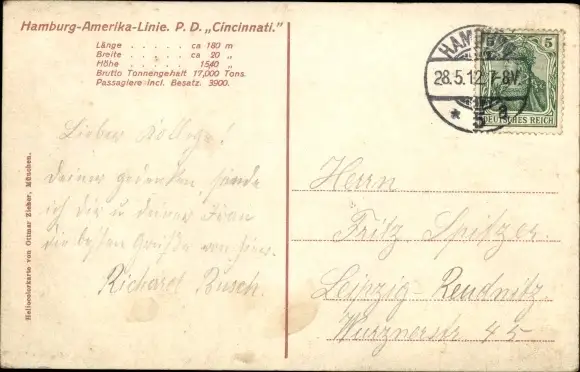 Hamburg-Amerika-Linie. P. D. „Cincinnati.”
Länge . . . . . . ca 180 m
Breite . . . . . . ca 20 „
Höhe . . . . . . 15,40 „
Brutto Tonnengehalt 17,000 Tons.
Passagiere incl. Besatz. 3900.
Lieber Kollege!
Deiner gedenken, sende
ich dir u deiner Frau
die besten Grüße von hier.
Richard Busch.
Heliocolorkarte von Ottmar Zieher, München.
HAMBURG
28.5.12.7-8V
* 5
5 5
DEUTSCHES REICH
Herrn
Fritz Spitzer.
Leipzig-Reudnitz
Wurznerstr 45